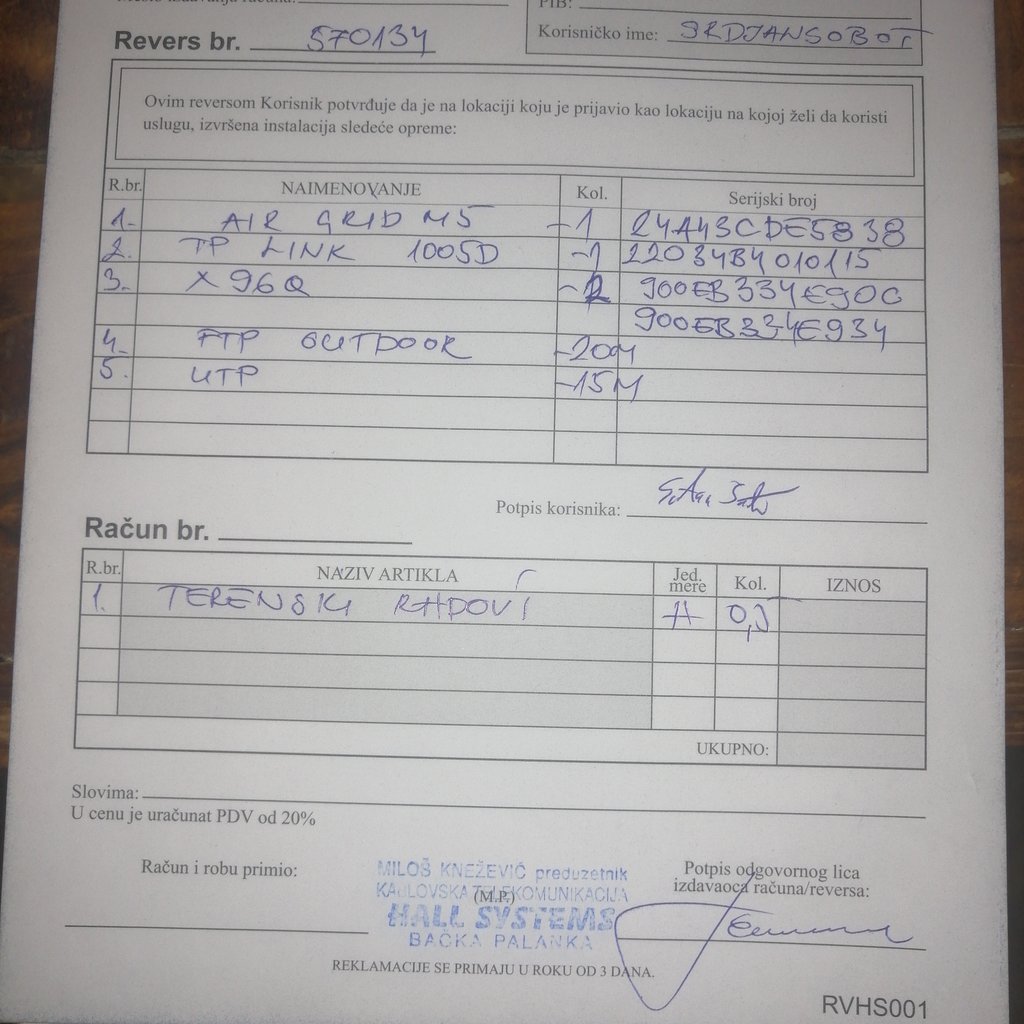 PIB:
Revers br. 570134
Korisničko ime: SRDJANSOBOT
Ovim reversom Korisnik potvrđuje da je na lokaciji koju je prijavio kao lokaciju na kojoj želi da koristi
uslugu, izvršena instalacija sledeće opreme:
R.br. NAIMENOVANJE Kol. Serijski broj
1. AIR GRID M5 -1 24A43CDE5838
2. TP LINK 1005D -1 22034B4010115
3. X96Q -2 900EB334E90C
900EB334E934
4. FTP OUTDOOR -20M
5. UTP -15M
Potpis korisnika:
Račun br.
R.br. NAZIV ARTIKLA Jed. mere Kol. IZNOS
1. TERENSKI RADOVI H
UKUPNO:
Slovima:
U cenu je uračunat PDV od 20%
Račun i robu primio:
MILOŠ KNEŽEVIĆ preduzetnik
KARLOVSKA TELEKOMUNIKACIJA
(M.P.)
HALL SYSTEMS
BAČKA PALANKA
Potpis odgovornog lica
izdavaoca računa/reversa:
REKLAMACIJE SE PRIMAJU U ROKU OD 3 DANA.
RVHS001